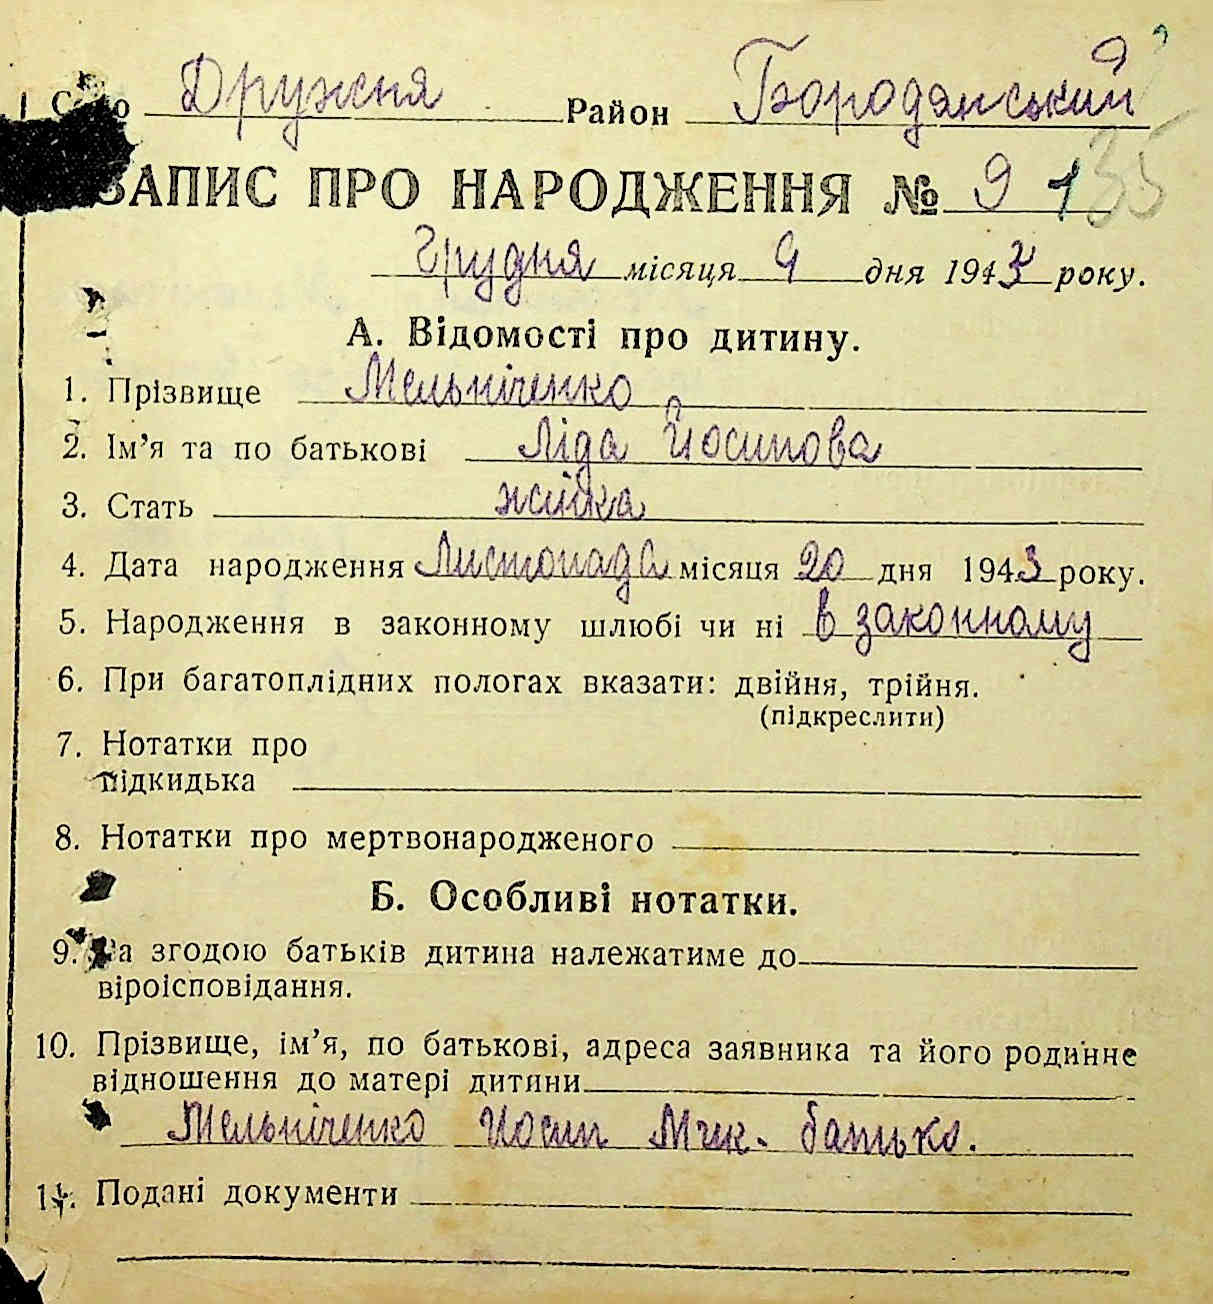 Село Дружня Район Бородянський
9
ЗАПИС ПРО НАРОДЖЕННЯ № 91 35
Грудня місяця 9 дня 1943 року.
А. Відомості про дитину.
1. Прізвище Мельніченко
2. Ім'я та по батькові Ліда Йосипова
3. Стать жінка
4. Дата народження Листопада місяця 20 дня 1943 року.
5. Народження в законному шлюбі чи ні в законному
6. При багатоплідних пологах вказати: двійня, трійня.
(підкреслити)
7. Нотатки про
підкидька
8. Нотатки про мертвонародженого
Б. Особливі нотатки.
9. За згодою батьків дитина належатиме до
віроісповідання.
10. Прізвище, ім'я, по батькові, адреса заявника та його родинне
відношення до матері дитини
Мельніченко Иосип батько.
11. Подані документи